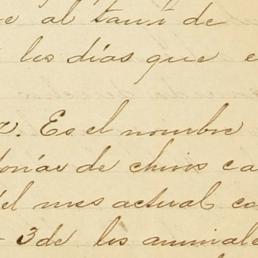 e al tant de
los días que e
. Es el nombre
de chivos ca
el mes actual co
3 de los animale